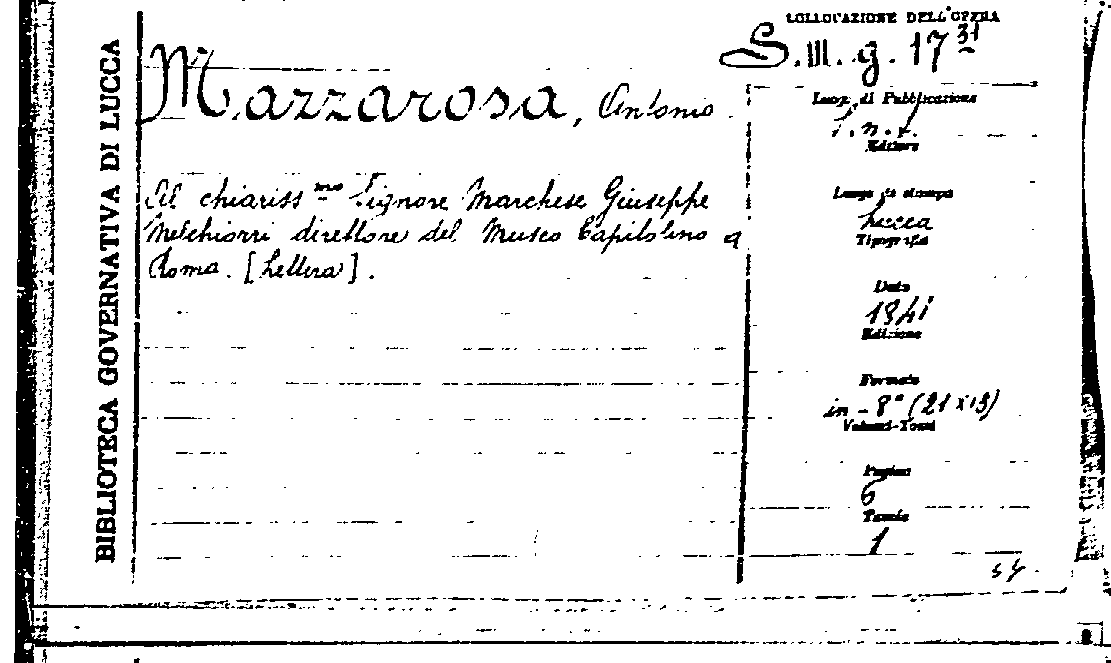 BIBLIOTECA GOVERNATIVA DI LUCCA
COLLOCAZIONE DELL'OPERA
S.III.g.17 31
Mazzarosa, Antonio
Al chiariss mo Signore Marchese Giuseppe
Melchiorri direttore del Museo Capitolino a
Roma. [Lettera].
Luogo di Pubblicazione
s.n.t.
Editore
Luogo di stampa
Lucca
Tipografia
Data
1841
Edizione
Formato
in-8° (21x13)
Volumi-Tomi
Pagine
6
Tavole
1